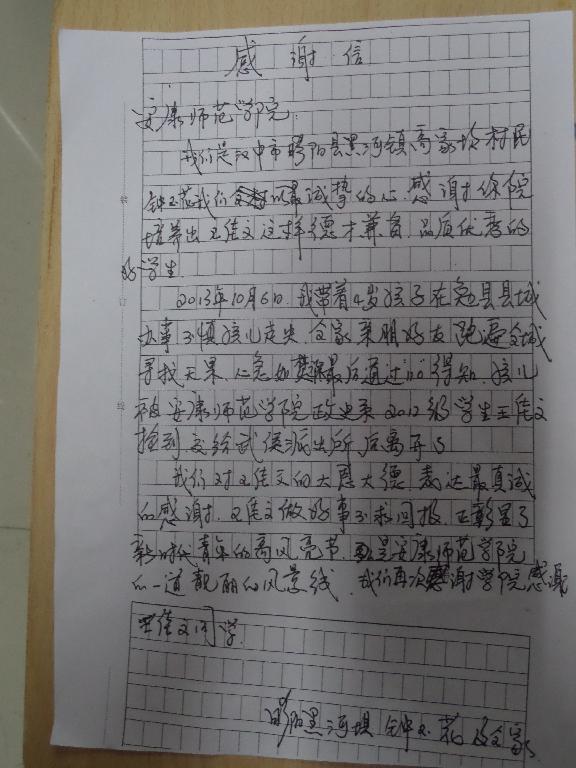 感谢信
安康师范学院:
我们是汉中市略阳县黑河镇高家坎村民
钟玉花我们全家以最诚挚的心.感谢你院
培养出王佳文这样德才兼备.品质优秀的
好学生.
2013年10月6日.我带着4岁孩子在勉县县城
办事不慎孩儿走失.全家亲朋好友跑遍全城
寻找无果.心急如焚最后通过110得知.孩儿
被安康师范学院政史系2012级学生王佳文
捡到交给武侯派出所后离开了
我们对王佳文的大恩大德.表达最真诚
的感谢.王佳文做好事不求回报.正彰显了
新时代青年的高风亮节.更是安康师范学院
的一道靓丽的风景线.我们再次感谢学院感谢
王佳文同学.
略阳黑河坝 钟玉花及全家
装
订
线